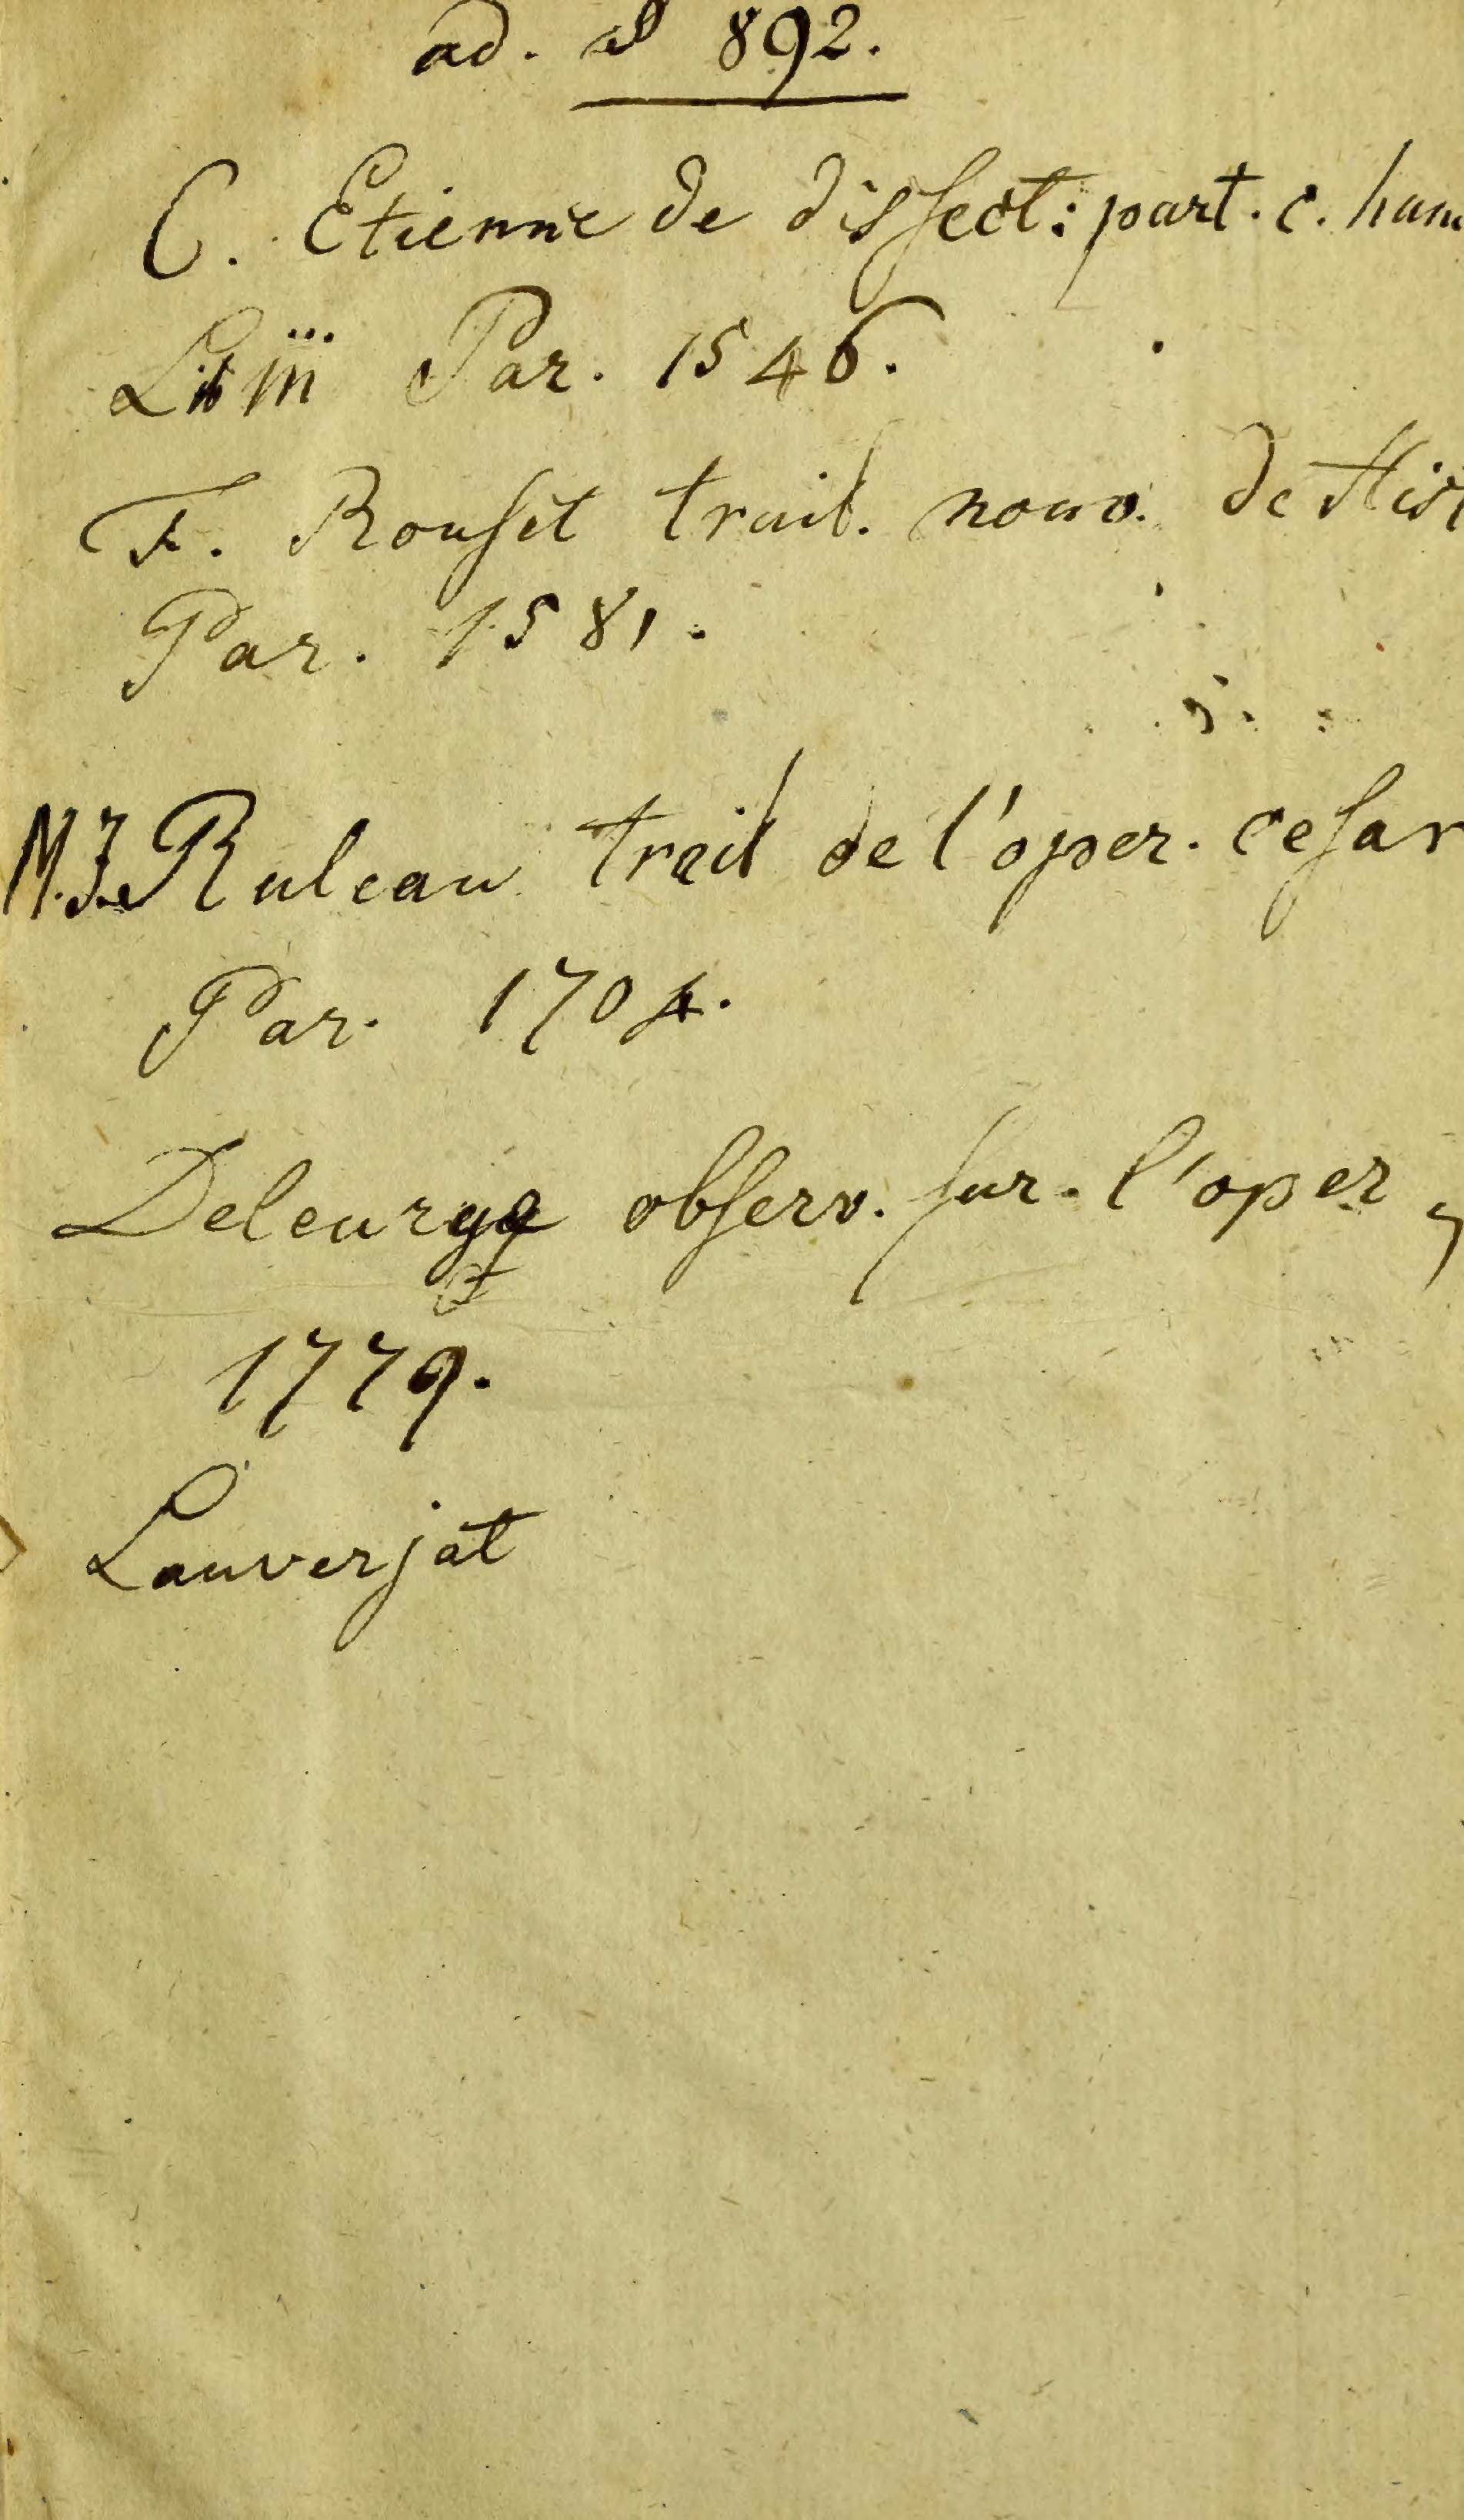 ad. 892.
C. Etienne de dissect: part. c. hum
Lib III Par. 1546.
F. Rouset trait. nouv. de Hist
Par. 1581.
M. Je Ruleau trait de l'oper. cesar
Par. 1704.
Deleurye observ. sur. l'oper
1779.
Lauverjat